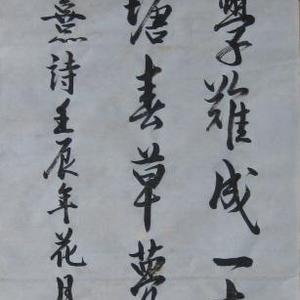 學難成一
塘春草夢
熹詩壬辰年花月